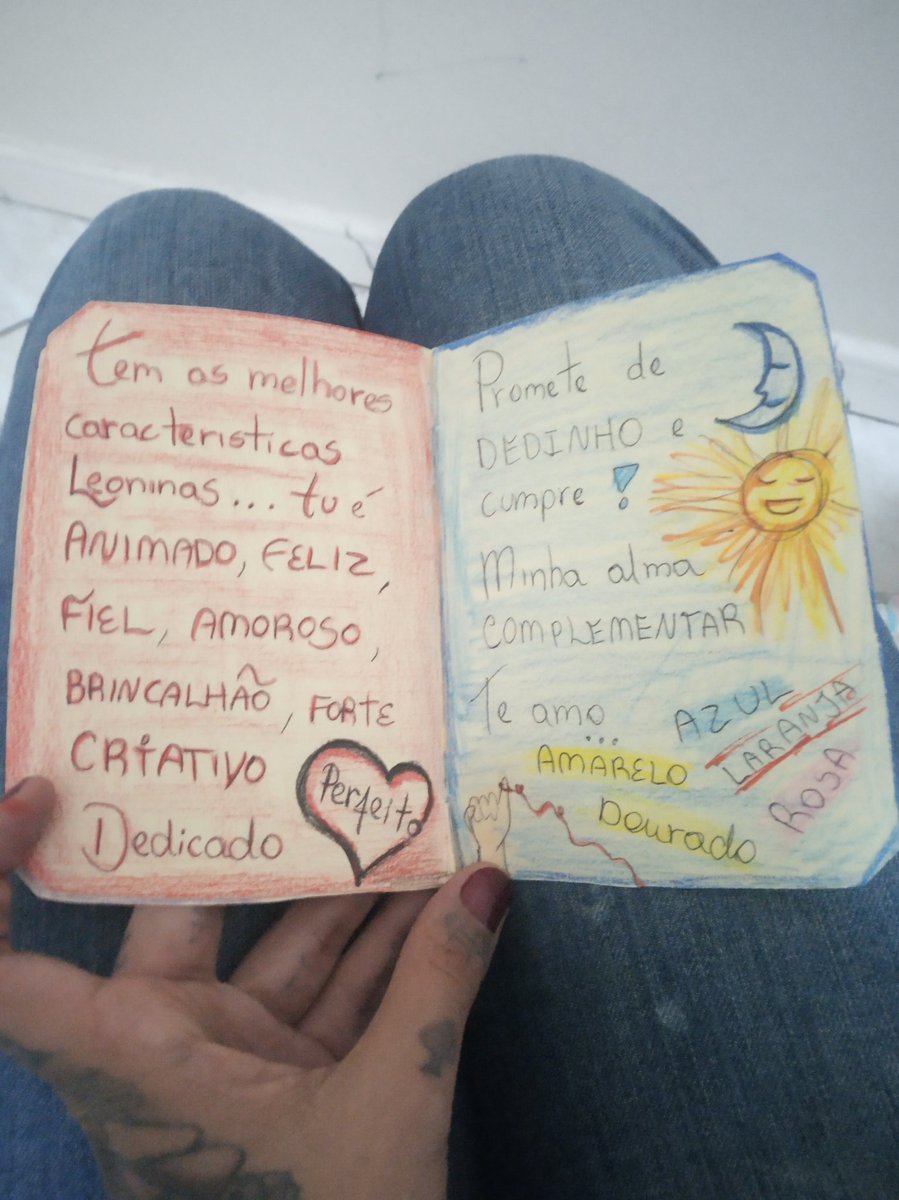 Tem as melhores
caracteristicas
Leoninas... tu é
ANIMADO, FELIZ,
FIEL, AMOROSO,
BRINCALHÃO, FORTE
CRIATIVO
Dedicado
Perfeito
Promete de
DEDINHO e
cumpre!
Minha alma
COMPLEMENTAR
Te amo...
AZUL
LARANJA
AMARELO
ROSA
Dourado